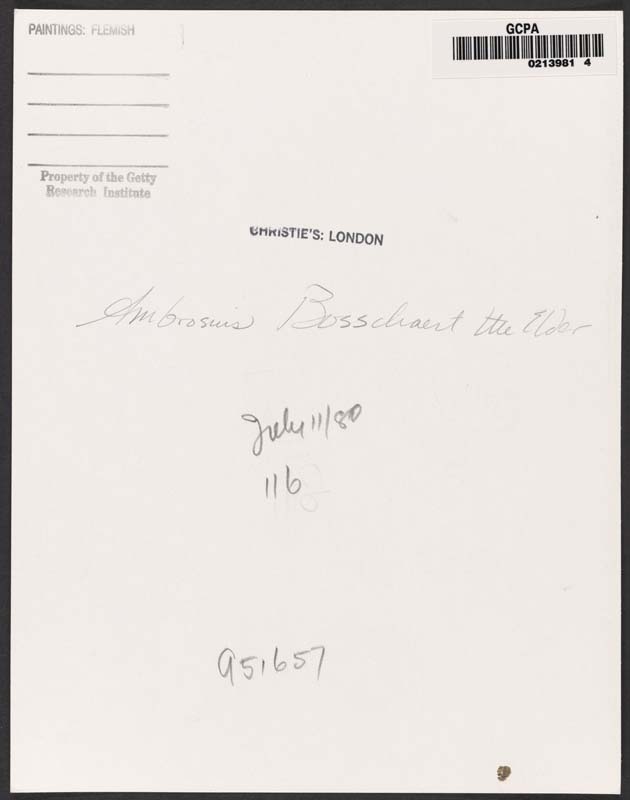 PAINTINGS: FLEMISH
GCPA
0213981 4
Property of the Getty
Research Institute
CHRISTIE'S: LONDON
Ambrosius Bosschaert the Elder
July 11/80
116
951657